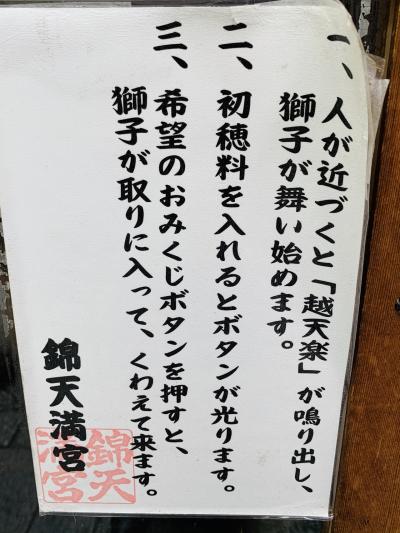 一、人が近づくと「越天楽」が鳴り出し、
獅子が舞い始めます。
二、初穂料を入れるとボタンが光ります。
三、希望のおみくじボタンを押すと、
獅子が取りに入って、くわえて来ます。
錦天満宮
錦天
満宮